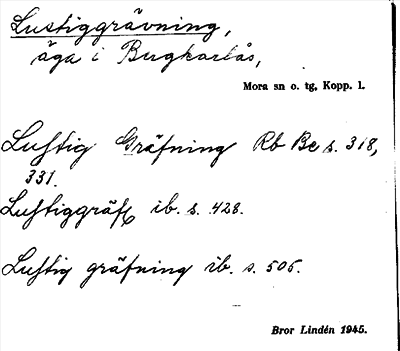 Lustiggrävning,
äga i Bergkarlås,
Mora sn o. tg, Kopp. l.
Luſtig Gräfning Rb Be s. 318,
331.
Luſtiggräfg ib. s. 428.
Luſtig gräfning ib. s. 505.
Bror Lindén 1945.